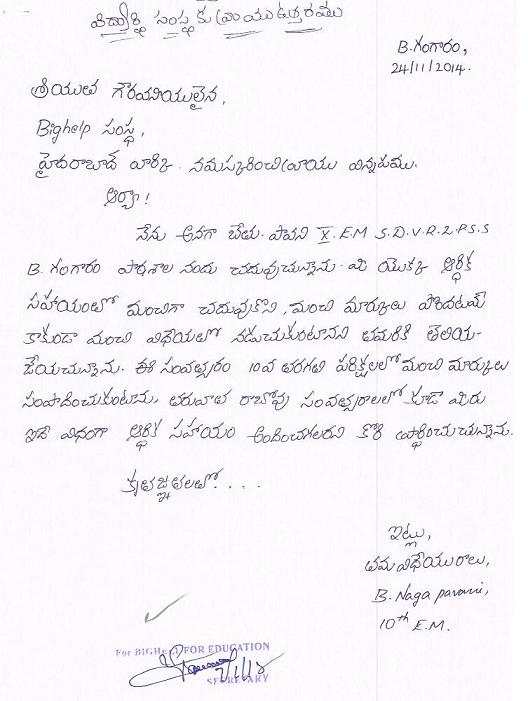 విద్యార్థి సంస్థకు వ్రాయు ఉత్తరము
B. గంగారం,
24/11/2014.
శ్రీయుత గౌరవనీయులైన,
Bighelp సంస్థ,
హైదరాబాద్ వారికి నమస్కరించి వ్రాయు విన్నపము.
ఆర్యా!
నేను అనగా బేతు. పావని X. EM S.D.V.R.Z.P.S.S
B. గంగారం పాఠశాల నందు చదువుచున్నాను. మీ యొక్క ఆర్థిక
సహాయంతో మంచిగా చదువుకొని, మంచి మార్కులు పొందటమే
కాకుండా మంచి విధేయలో నడుచుకుంటానని తమరికి తెలియ-
చేయచున్నాను. ఈ సంవత్సరం 10వ తరగతి పరిక్షలలో మంచి మార్కులు
సంపాదించుకుంటాను. తరువాత రాబోవు సంవత్సరాలలో కూడా మీరు
ఇదే విధంగా ఆర్థిక సహాయం అందించగలరని కోరి ప్రార్థించుచున్నాను.
కృతజ్ఞతలతో....
ఇట్లు,
తమ విధేయురాలు,
B. Naga pavani,
10th E.M.
For BIGHELP FOR EDUCATION
SECRETARY